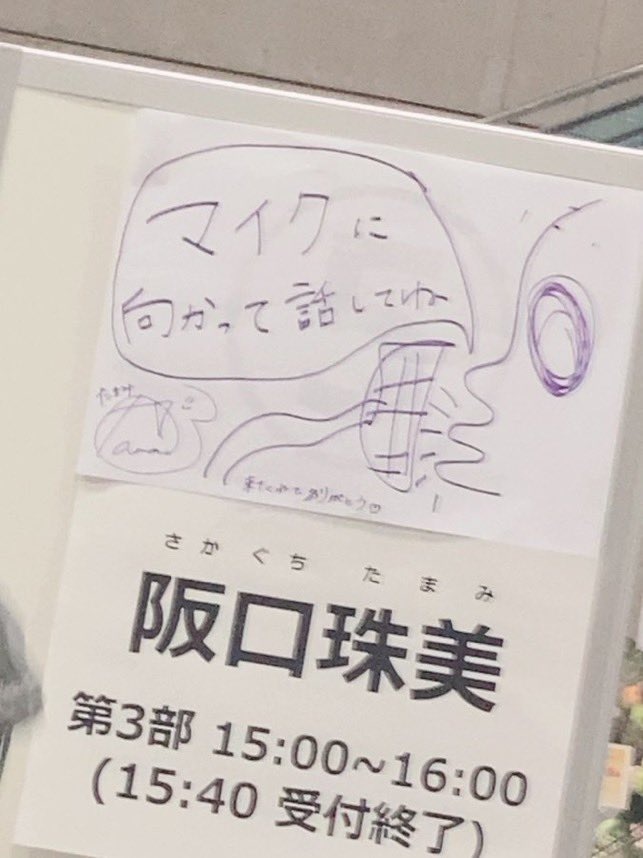 マイクに
向かって話してね
たまみ
来てくれてありがとう
さかぐち たまみ
阪口珠美
第3部 15:00~16:00
(15:40 受付終了)